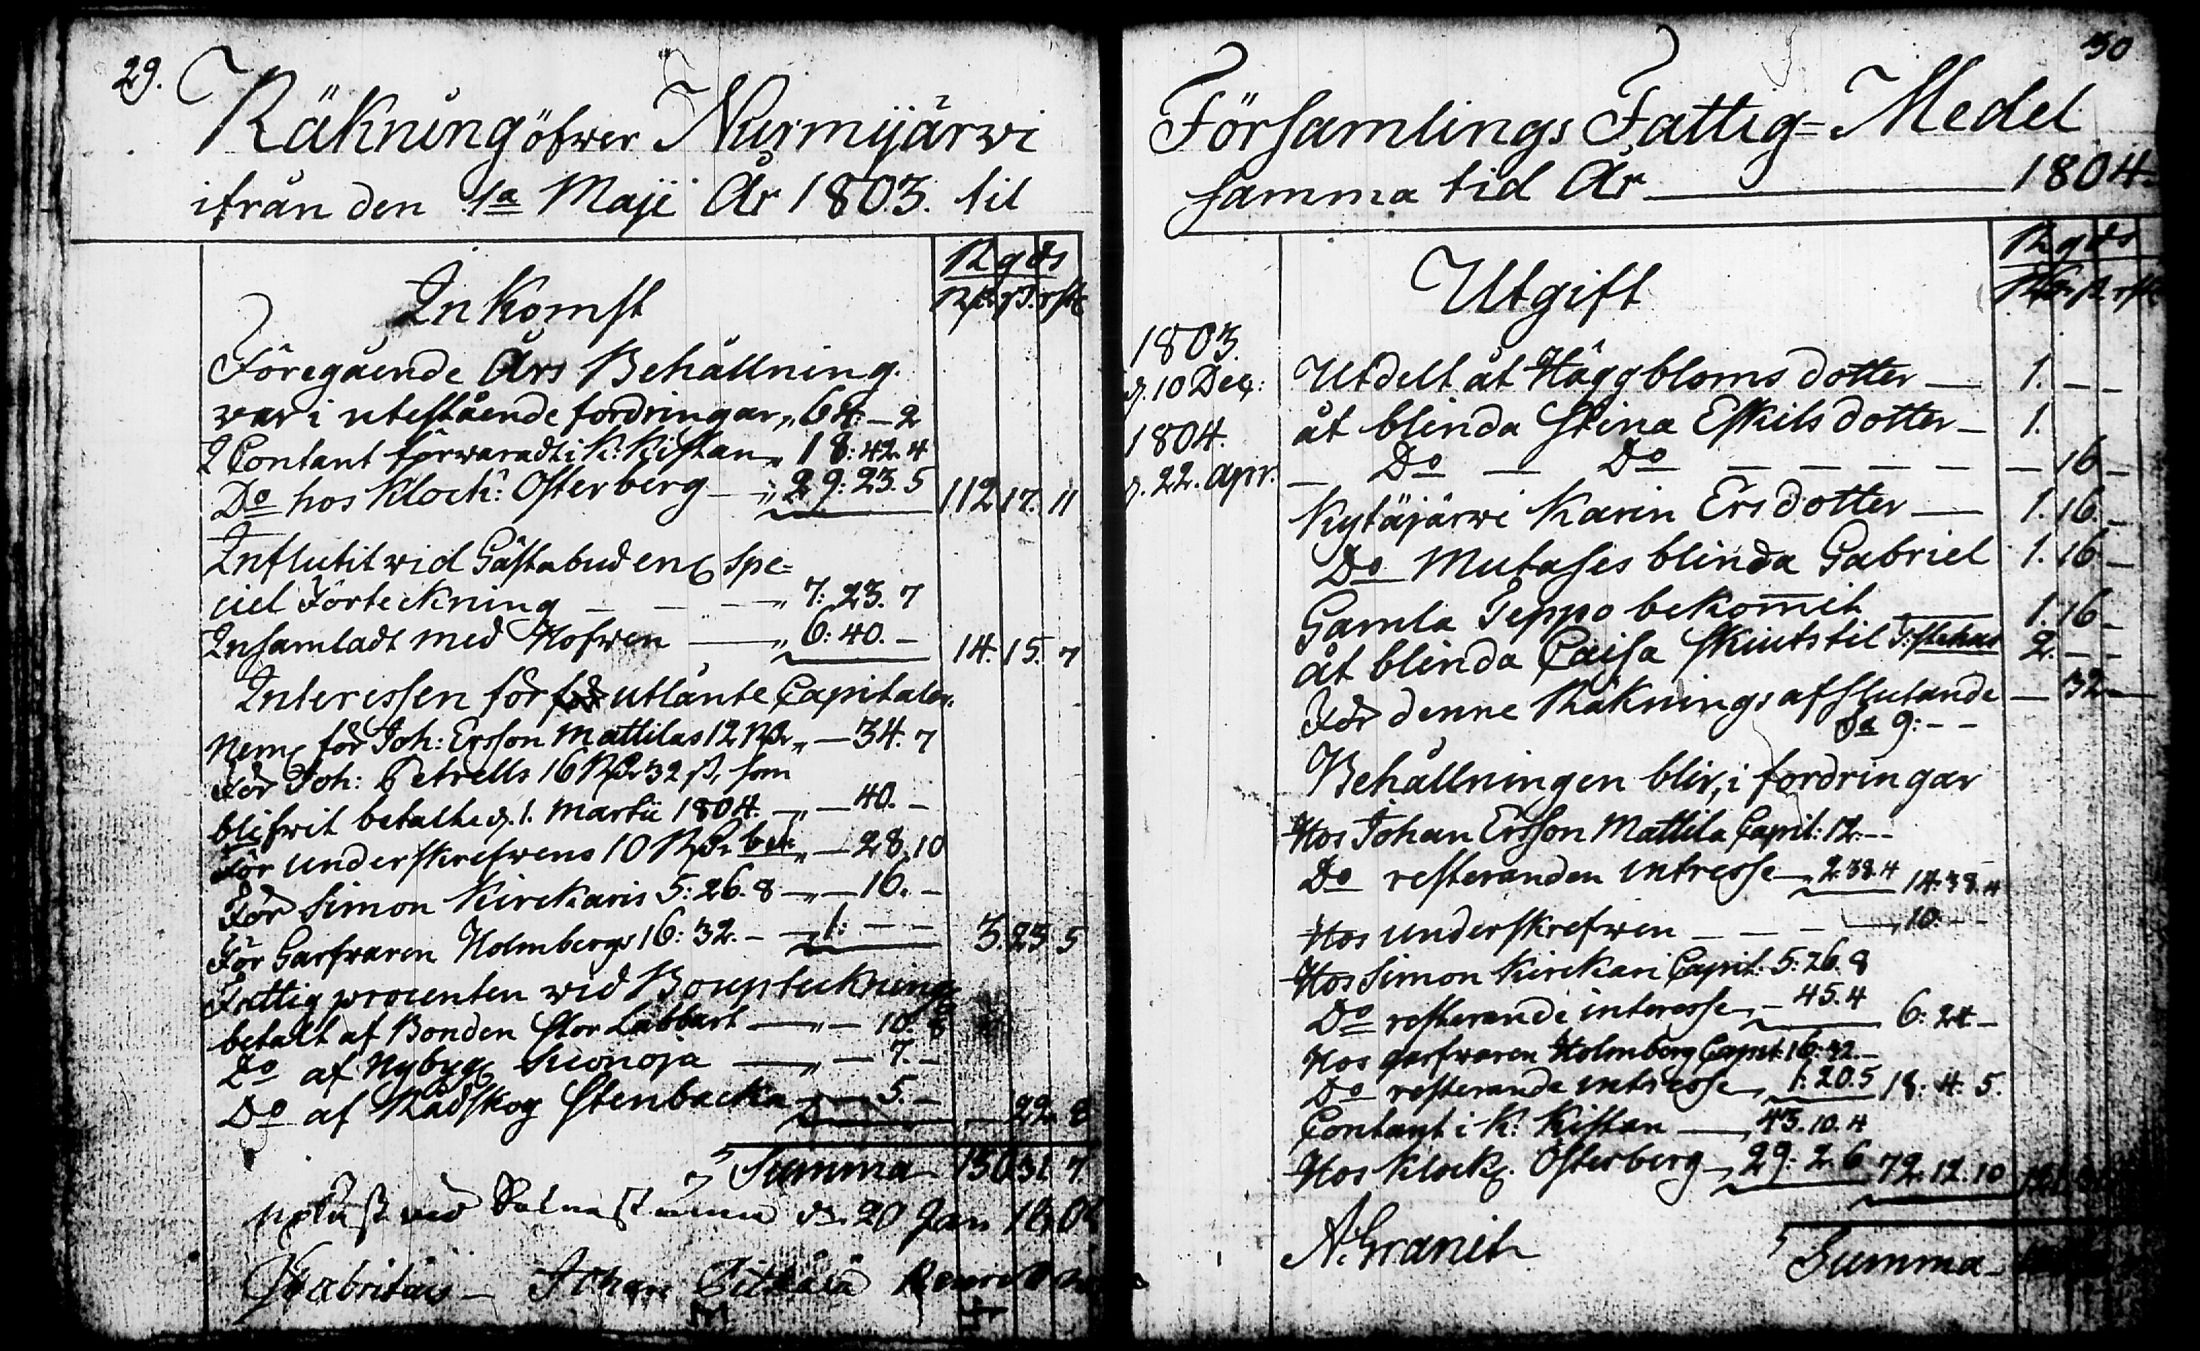 29.
Räkning öfwer Nurmijärwi
ifrån den 1a Maji År 1803. til
Inkomst
Rgds
Rd. ß. rst
Föregående Års Behållning.
war i utestående fordringar „ 64: – 2
I Contant förwaradt i K: Kistan „ 18: 42. 4
Do hos Klock: Österberg – „ 29: 23. 5 112 17. 11
Influtit wid Gästabuden spe=
ciel Förteckning – – – „ 7: 23. 7
Insamladt med Hofwen – „ 6: 40. – 14. 15. 7
Interessen för utlånte Capitaler.
Neml för Joh: Ersson Mattilas 12 Rd „ – 34. 7
För Joh: Petrells 16 Rd 32 ß, som
blifwit betalte d. 1. Martii 1804. – „ – 40. –
För underskrefwens 10 Rd. bet: „ – 28. 10
För Simon Kirckaris 5: 26. 8 – „ – 16. –
För Garfwaren Holmbergs 16: 32. – – 1: – – 3. 23 5
Fattig procenten wid Bouptekning
betalt af Bonden Stor Labbart – „ – 10. 8
Do af Nybygg – „ – 7. –
Do af Rådskog Stenbacka – 5. – – 22. 8
Summa 130 31. 7.
d. 20 Jan
Johan
30
Församlings Fattig=Medel
samma tid År – 1804.
Utgift
Rgds
Rd. ß. rst
1803.
d. 10 Dec: Utdelt åt Häggbloms dotter – 1. – –
1804. åt blinda Stina Eskils dotter – 1.
d. 22. Apr. – Do – Do – – – – – – 16 –
Kytäjärwi Karin Ers dotter – 1. 16. –
Do Mutases blinda Gabriel 1. 16 –
Gamla Jeppo bekommit 1. 16 –
åt blinda Caisa skiuts til 2. – –
För denne Räknings afslutande – 32 –
Sa 9: – –
Behållningen blir, i fordringar
Hos Johan Ersson Mattila Capit: 12. – –
Do resteranden intresse – 2 38. 4 14. 38. 4
Hos underskrefwen – – – – 10. – –
Hos Simon Kirckari Capit: 5: 26. 8
Do resterande interesse „ – 45. 4 6: 24 –
Hos garfwaren Holmberg Capit: 16: 32. –
Do resterande intresse „ 1: 20. 5 18: 4. 5.
Contant i K: Kistan – „ 43. 10. 4
Hos Klock. Österberg – 29: 2 6 72. 12. 10
A. Granit
Summa –